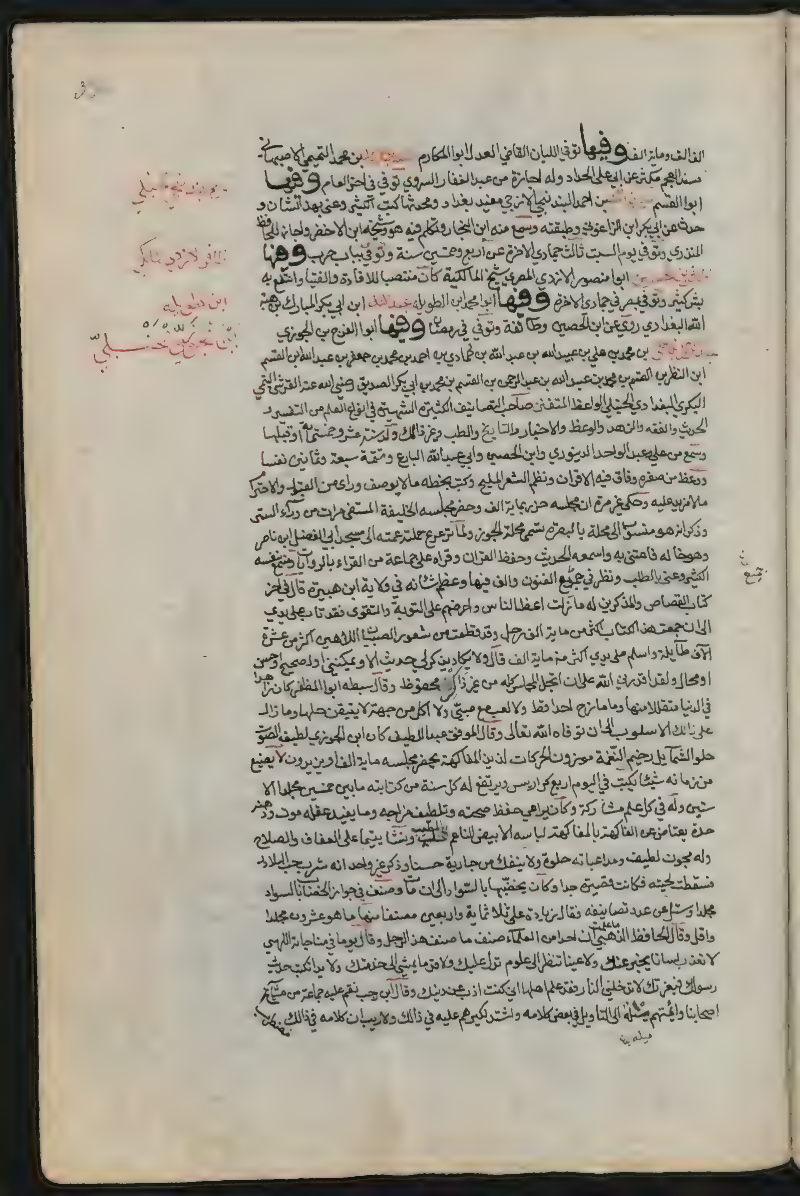 الف الف وماية الف وفيها توفي اللبان القاضي العدل ابو المكارم بن محمد التميمي الاصبهاني
مسند العجم مكثر عن ابي علي الحداد وله اجازة من عبد الغفار الشروي توفي في اخر العام وفيها
ابو القسم بن احمد البندنيجي الازجي معيد بغداد ومحدثها كتب الكثير وعني بهذا الشان و
حدث عن ابي بكر ابن الزاغوني وطبقته وسمع منه ابن النجار وتكلم فيه هو وشيخه ابن الاخضر واجاز للحافظ
المنذري وتوفي يوم السبت ثالث جمادي الاخرة عن اربع وخمسين سنة وتوفي بباب حرب وفيها
ابو منصور الازدي المصري شيخ المالكية كان منتصبا للافادة والفتيا وانتفع به
بشر كثير وتوفي بمصر في جمادي الاخرة وفيها ابو محمد ابن الطويله عبد الله ابن ابي بكر المبارك بن هبة
الله البغدادي روي عن ابن الحصين وطائفة وتوفي في رمضان وفيها ابو الفرج بن الجوزي
بن محمد بن علي بن عبيد الله بن عبد الله بن حمادي بن احمد بن محمد بن جعفر بن عبد الله ابن القسم
ابن النظر بن القسم بن محمد بن عبد الله بن عبد الرحمن بن القسم بن محمد بن ابي بكر الصديق رضي الله عنه القرشي التيمي
البكري البغدادي الحنبلي الواعظ المتفنن صاحب التصانيف الكثيرة الشهيرة في انواع العلم من التفسير و
الحديث والفقه والزهد والوعظ والاخبار والتاريخ والطب وغير ذالك ولد سنة عشر وخمسماية او قبلها
وسمع من علي بن عبد الواحد الدينوري وابن الحصين وابي عبد الله البارع وتتمة سبعة وثمانين نفسا
ووعظ من صغره وفاق فيه الاقران ونظم الشعر المليح وكتب بخطه ما لا يوصف وراي من القبول والاحترام
ما لا مزيد عليه وحكي غير مرة ان مجلسه حزر بماية الف وحضر مجلسه الخليفة المستضي مرات من وراء الستر
وذكر انه هو منسوب الي محلة بالبصرة تسمي محلة الجوز ولما ترعرع حملته عمته الي مسجد ابي الفضل ابن ناصر
وهو خاله فاعتني به واسمعه الحديث وحفظ القران وقراه علي جماعة من القراء بالروايات وسمع بنفسه
الكثير وعني بالطلب ونظر في جميع الفنون والف فيها وعظم شانه في ولاية ابن هبيرة قال في اخر
كتاب القصاص والمذكرين له ما زلت اعظ الناس واحرضهم علي التوبة والتقوي فقد تاب علي يدي
الي ان جمعت هذا الكتاب اكثر من ماية الف رجل وقد قطعت من شعور الصبيان اللاهين اكثر من عشرة
الاف طايلة واسلم علي يدي اكثر من ماية الف قال ولا يكاد يذكر لي حديث الا ويمكنني اقول صحيح او حسن
او محال ولقد اقدرني الله علي ان ارتجل المجلس كله من غير ذكر محفوظ وقال سبطه ابو المظفر كان زاهدا
في الدنيا متقللا منها وما مازح احدا قط ولا لعب مع صبي ولا اكل من جهة لا يتيقن حلها وما زال
علي ذالك الاسلوب الي ان توفاه الله تعالي وقال الموفق عبد اللطيف كان ابن الجوزي لطيف الصوت
حلو الشمايل رخيم النغمة موزون الحركات لذيذ المفاكهة يحضر مجلسه ماية الف او يزيدون لا يضيع
من زمانه شيئا يكتب في اليوم اربع كراريس ويرتفع له كل سنة من كتابته ما بين خمسين مجلدا الا
ستين وله في كل علم مشاركة وكان يراعي حفظ صحته وتلطيف مزاجه وما يفيد عقله قوة وذهنه
حدة يعتاض عن الفاكهة بالمفاكهة لباسه الابيض الناعم المطيب ونشا يتيما علي العفاف والصلاح
وله مجون لطيف ومداعباته حلوة ولا ينفك من جارية حسنا وذكر غير واحد انه شرب حب البلادر
فسقطت لحيته فكانت قصيرة جدا وكان يخضبها بالسواد الي ان مات وصنف في جواز الخضاب بالسواد
مجلدا وسئل عن عدد تصانيفه فقال زيادة علي ثلاثماية واربعين مصنفا منها ما هو عشرون مجلدا
واقل وقال الحافظ الذهبي ما علمت ان احدا من العلماء صنف ما صنف هذا الرجل وقال يوما في مناجاته الهي
لا تعذب لسانا يخبر عنك ولا عينا تنظر الي علوم تدل عليك ولا قدما يمشي الي خدمتك ولا يدا تكتب حديث
رسولك فبعزتك لا تدخلني النار فقد علم اهلها اني كنت اذب عن دينك وقال ابن رجب نقم عليه جماعة من مشايخ
اصحابنا وايمتهم ميله الي التاويل في بعض كلامه واشتد نكيرهم عليه في ذالك ولا ريب ان كلامه في ذالك
ميله
جميع
ابن طويله